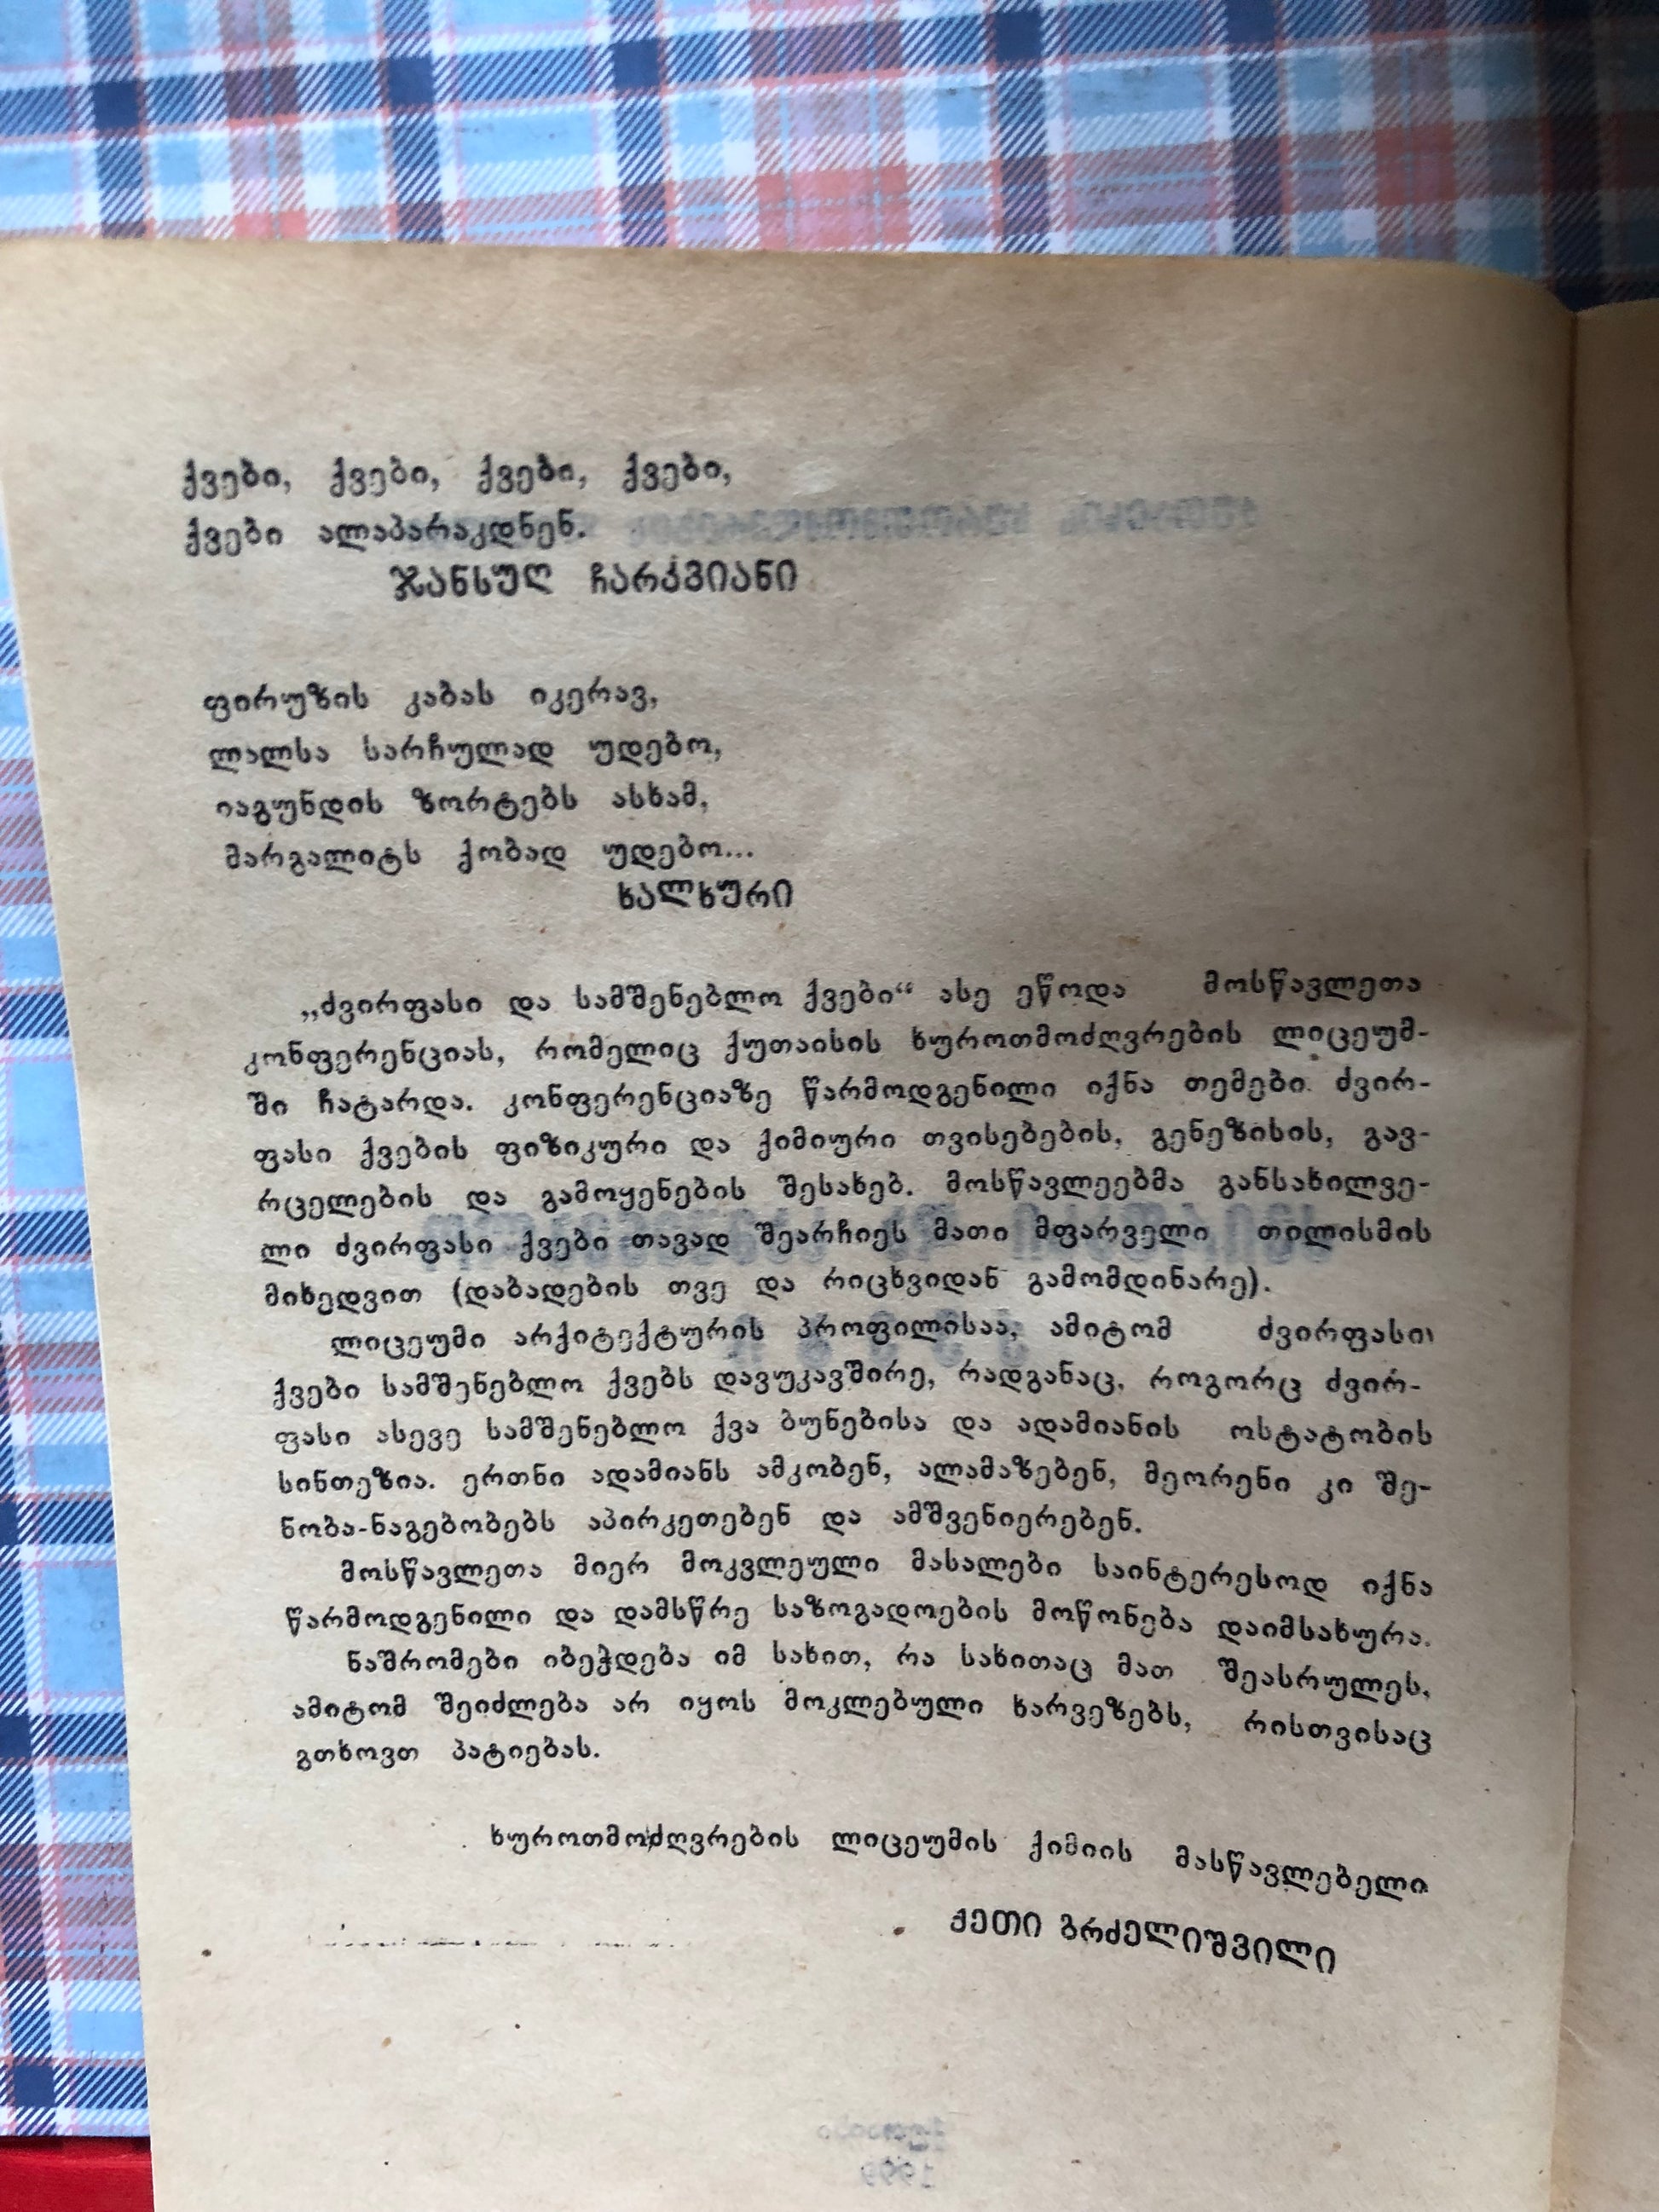 ქვები, ქვები, ქვები, ქვები,
ქვები ალაპარაკდნენ.
ჯანსუღ ჩარკვიანი
ფირუზის კაბას იკერავ,
ლალსა სარჩულად უდებო,
იაგუნდის ზორტებს ასხამ,
მარგალიტს ქობად უდებო...
ხალხური
„ძვირფასი და სამშენებლო ქვები“ ასე ეწოდა მოსწავლეთა
კონფერენციას, რომელიც ქუთაისის ხუროთმოძღვრების ლიცეუმ-
ში ჩატარდა. კონფერენციაზე წარმოდგენილი იქნა თემები ძვირ-
ფასი ქვების ფიზიკური და ქიმიური თვისებების, გენეზისის, გავ-
რცელების და გამოყენების შესახებ. მოსწავლეებმა განსახილვე-
ლი ძვირფასი ქვები თავად შეარჩიეს მათი მფარველი თილისმის
მიხედვით (დაბადების თვე და რიცხვიდან გამომდინარე).
ლიცეუმი არქიტექტურის პროფილისაა, ამიტომ ძვირფასი
ქვები სამშენებლო ქვებს დავუკავშირე, რადგანაც, როგორც ძვირ-
ფასი ასევე სამშენებლო ქვა ბუნებისა და ადამიანის ოსტატობის
სინთეზია. ერთნი ადამიანს ამკობენ, ალამაზებენ, მეორენი კი შე-
ნობა-ნაგებობებს აპირკეთებენ და ამშვენიერებენ.
მოსწავლეთა მიერ მოკვლეული მასალები საინტერესოდ იქნა
წარმოდგენილი და დამსწრე საზოგადოების მოწონება დაიმსახურა.
ნაშრომები იბეჭდება იმ სახით, რა სახითაც მათ შეასრულეს,
ამიტომ შეიძლება არ იყოს მოკლებული ხარვეზებს, რისთვისაც
გთხოვთ პატიებას.
ხუროთმოძღვრების ლიცეუმის ქიმიის მასწავლებელი
ქეთი გრძელიშვილი